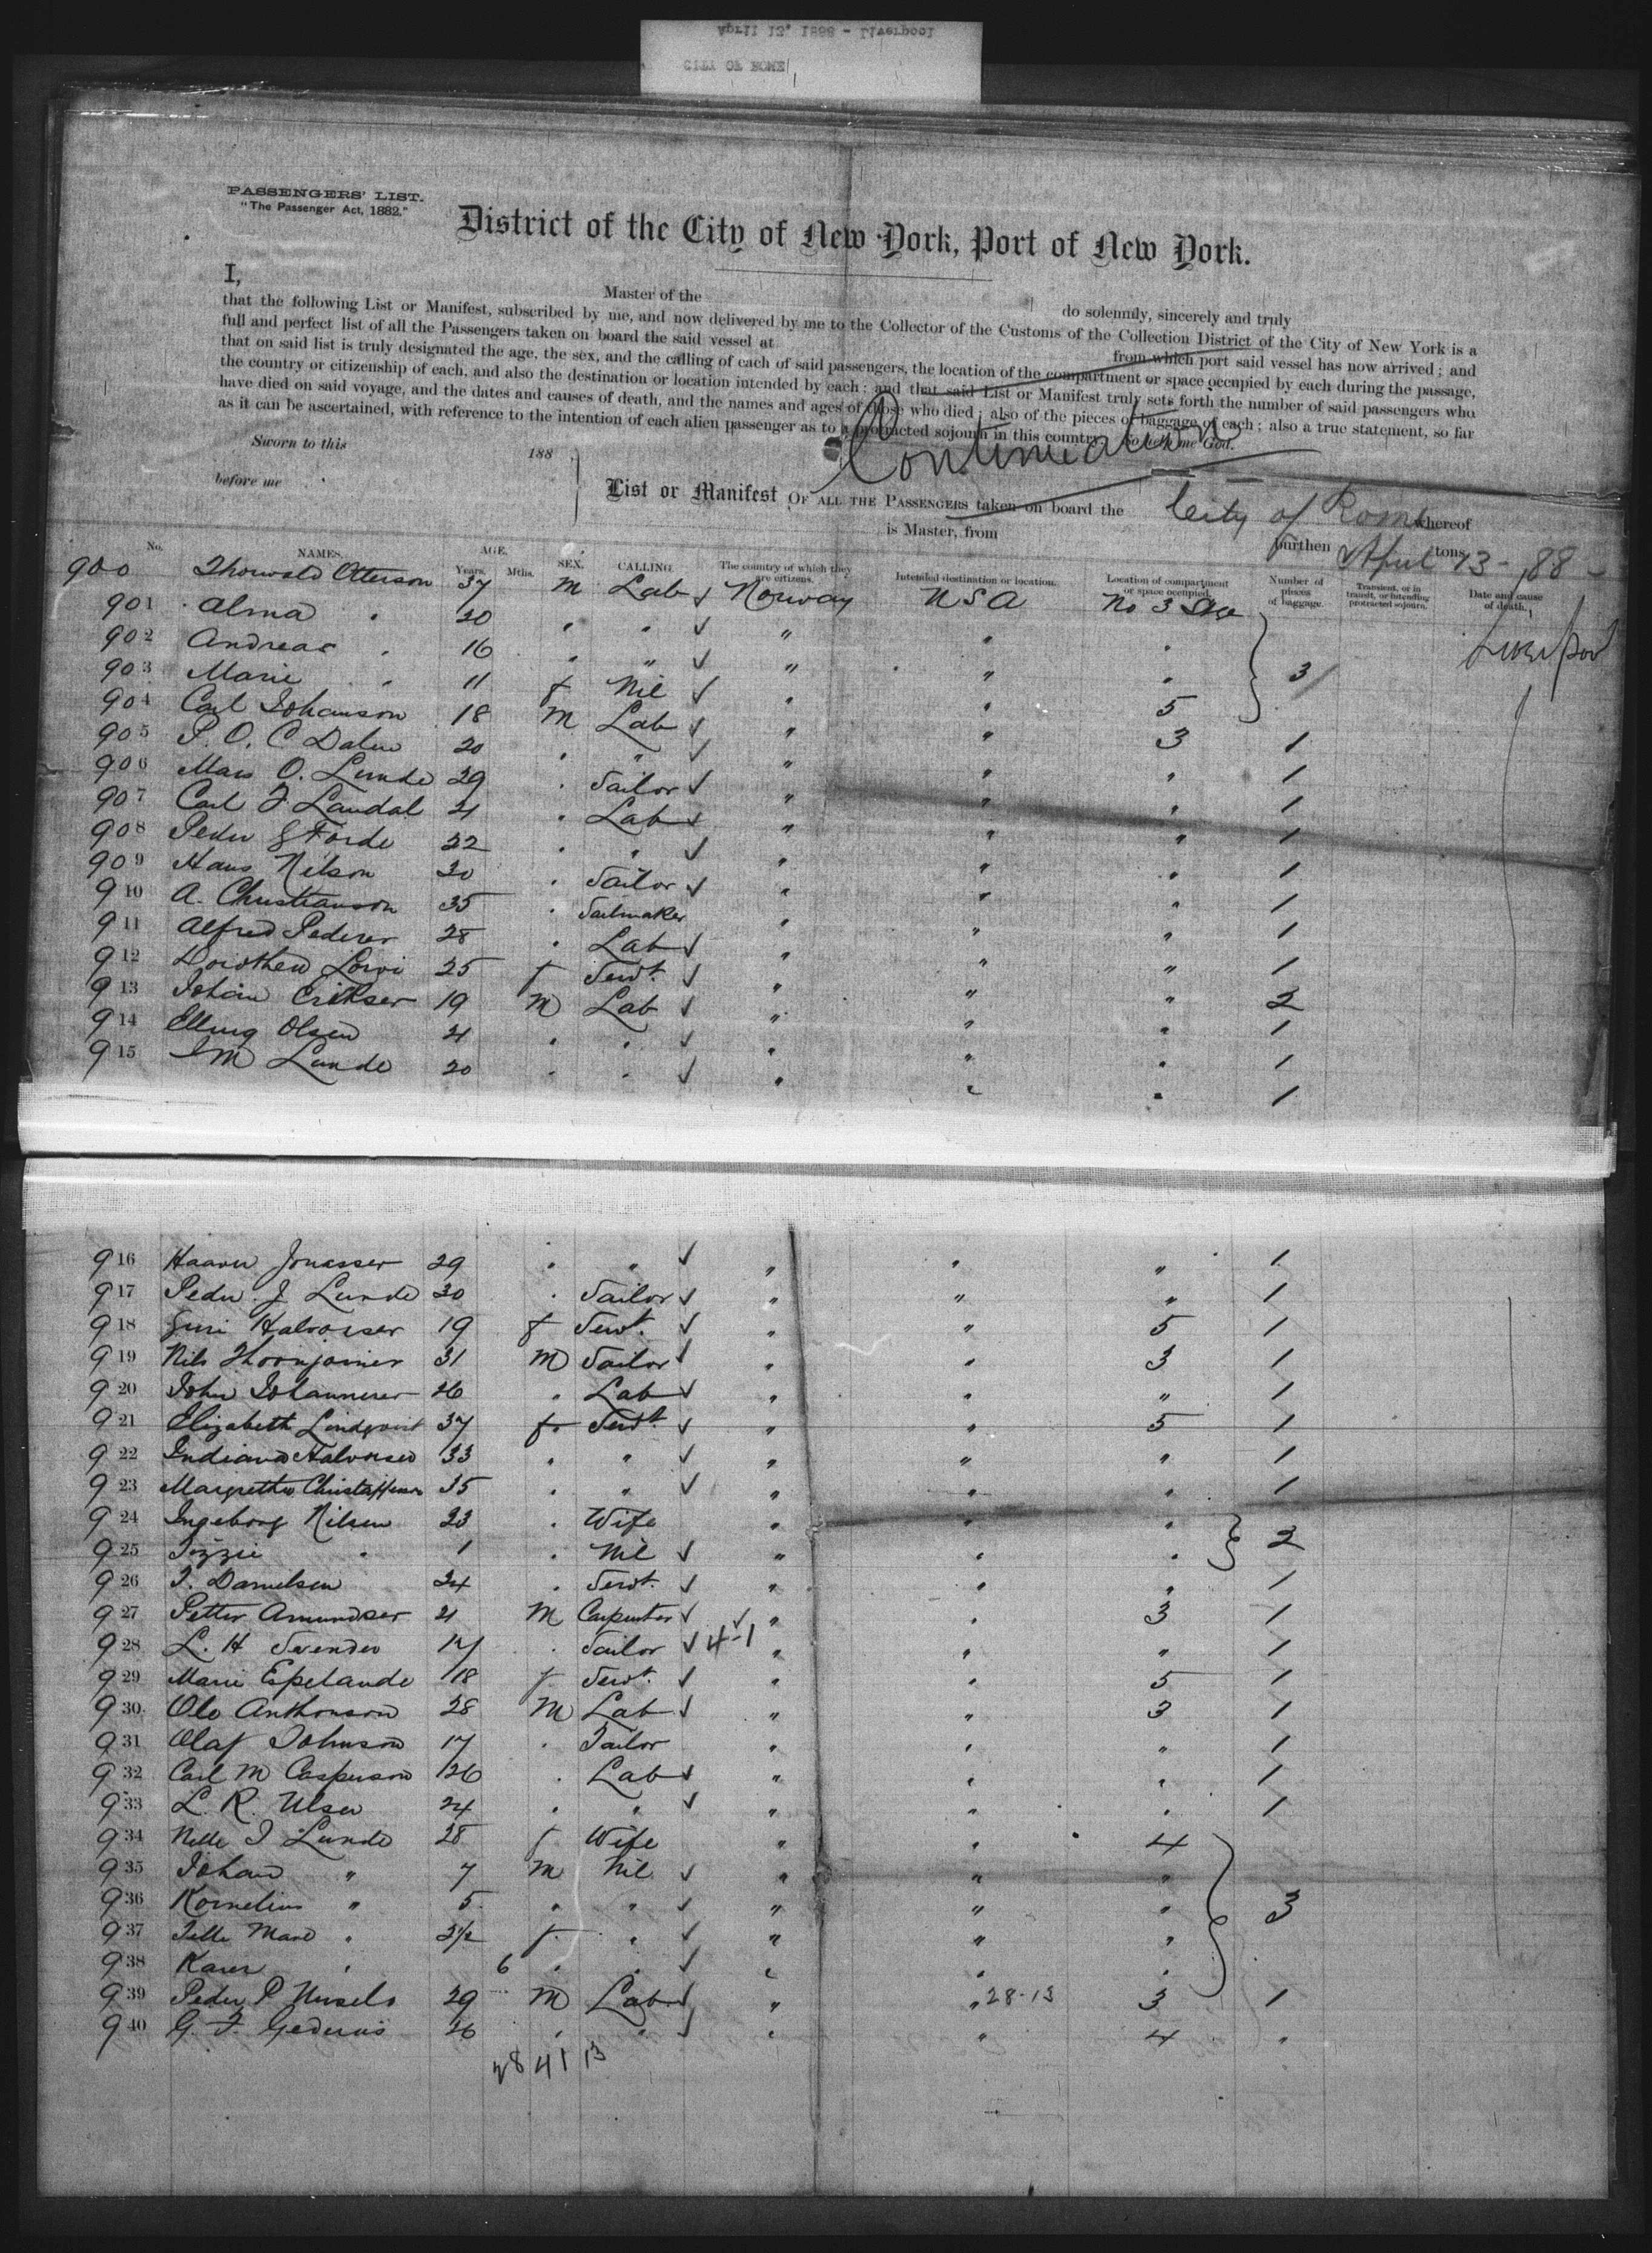 April 13, 1888 - Liverpool
CITY OF ROME
PASSENGERS' LIST.
"The Passenger Act, 1882."
District of the City of New York, Port of New York.
I, Master of the do solemnly, sincerely and truly
that the following List or Manifest, subscribed by me, and now delivered by me to the Collector of the Customs of the Collection District of the City of New York is a
full and perfect list of all the Passengers taken on board the said vessel at from which port said vessel has now arrived; and
that on said list is truly designated the age, the sex, and the calling of each of said passengers, the location of the compartment or space occupied by each during the passage,
the country or citizenship of each, and also the destination or location intended by each; and that said List or Manifest truly sets forth the number of said passengers who
have died on said voyage, and the dates and causes of death, and the names and ages of those who died; also of the pieces of baggage of each; also a true statement, so far
as it can be ascertained, with reference to the intention of each alien passenger as to a protracted sojourn in this country. So help me God.
Continuation
Sworn to this 188
before me
List or Manifest OF ALL THE PASSENGERS taken on board the City of Rome whereof
is Master, from burthen tons April 13 - 88 -
No. NAMES. AGE. Years. Mths. SEX. CALLING. The country of which they are citizens. Intended destination or location. Location of compartment or space occupied. Number of pieces of baggage. Transient, or in transit, or intending protracted sojourn. Date and cause of death.
Liverpool
900 Thorwald Otterson 37 M Lab ✓ Norway U S A No 3 3
901 Alma " 20 " " ✓ " " "
902 Andreas " 16 " " ✓ " " "
903 Marie " 11 f Nil ✓ " " 5
904 Carl Johanson 18 M Lab ✓ " " 3 1
905 P. O. C Dalen 20 " " ✓ " " " 1
906 O. Lunde 29 " Sailor ✓ " " " 1
907 Carl J Landal 21 " Lab ✓ " " " 1
908 Peder Forde 22 " " ✓ " " " 1
909 Hans Nilson 30 " Sailor ✓ " " " 1
910 A. Christianson 35 " Sailmaker " " " 1
911 Alfred Pederer 28 " Lab ✓ " " " 1
912 Dorothea 25 f Servt. ✓ " " " 2
913 Johan Erikser 19 M Lab ✓ " " " 1
914 Elling Olsen 21 " " ✓ " " " 1
915 M Lunde 20 " " ✓ " " " 1
916 Jonasser 29 " " ✓ " " " 1
917 Peder J Lunde 30 " Sailor ✓ " " " 1
918 Guri Halvorser 19 f Servt. ✓ " " 5 1
919 Nils 31 M Sailor ✓ " " 3 1
920 John Johanneser 26 " Lab ✓ " " " 1
921 Elizabeth Lindqvist 37 f Servt. ✓ " " 5 1
922 Indiana Halvorsen 33 " " ✓ " " " 1
923 Margrethe Christaffersen 35 " " ✓ " " " 1
924 Ingeborg Nilsen 23 " Wife " " " 2
925 " 1 " Nil ✓ " " "
926 J. Danielsen 24 " Servt. ✓ " " " 1
927 Petter Amundser 21 M Carpenter ✓ ✓ " " 3 1
928 L. H Svendsen 17 " Sailor ✓ 4-1 " " " 1
929 Marie Espelande 18 f Servt. ✓ " " 5 1
930 Ole Anthonson 28 M Lab ✓ " " 3 1
931 Olaf Johnson 17 " Tailor " " " 1
932 Carl M Casperson 26 " Lab ✓ " " " 1
933 L. R. Ulsen 24 " " ✓ " " " 1
934 Nelle J Lunde 28 f Wife " " 4 3
935 Johan " 7 M Nil ✓ " " "
936 Kornelius " 5 " " ✓ " " "
937 " 3½ f " ✓ " " "
938 Karen " 6 " " ✓ " " "
939 Peder P 29 M Lab ✓ " " 28-13 3 1
940 G. J. 26 " " ✓ " " 4 "
28 41 13